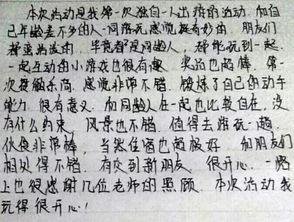 本次活动是我第一次独自一人出游的活动，和自
己年龄差不多的人一同游玩感觉挺有意思，朋友们
都蛮活泼的，毕竟都是同龄人，都能玩到一起，
一起互动的小游戏也很有趣，实践也超棒，第一
次接触乐高，感觉非常不错，锻炼了自己的动手
能力，很有意义，和同龄人在一起也比较自在，没
有什么约束，风景也不错，值得去游玩一趟，
伙食非常棒，当然住宿也超级好，和朋友们
相处得不错，有交到新朋友，很开心，一路
上也很感谢几位老师的照顾，本次活动我
玩得很开心！